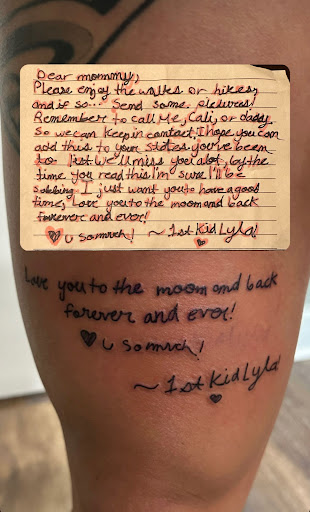 Dear mommy,
Please enjoy the walks or hikes,
and if so... Send some pictures!
Remember to call Me, Cali, or daddy
So we can keep in contact, I hope you can
add this to your states you've been
to list we'll miss you alot, by the
time you read this I'm sure I'll be
sobbing I just want you to have a good
time, Love you to the moom and back
forever and ever!
♡ u so much! ~ 1st Kid Lyla!
♡
Love you to the moom and back
forever and ever!
♡ u so much!
~ 1st Kid Lyla!
♡